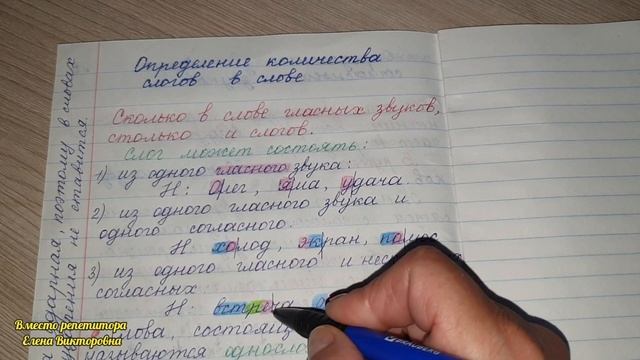 Определение количества
слогов в слове
Сколько в слове гласных звуков,
столько и слогов.
Слог может состоять:
1) из одного гласного звука:
Н: Олег, яма, удача.
2) из одного гласного звука и
одного согласного.
Н холод, экран, полюс
3) из одного гласного и
согласных
Н: встреча
состоящ
называются однослo
ударная, поэтому в словах
ударения не ставится.
Вместо репетитора
Елена Викторовна
BRAUBERG